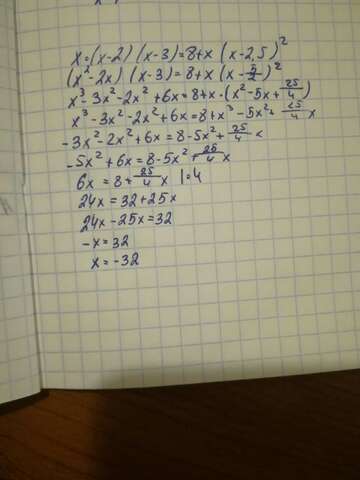 x=(x-2) (x-3)=8+x (x-2,5)²
(x²-2x) (x-3)=8+x (x-5/2)²
x³-3x²-2x²+6x=8+x·(x²-5x+25/4)
x³-3x²-2x²+6x=8+x³-5x²+25/4 x
-3x²-2x²+6x=8-5x²+25/4 x
-5x²+6x=8-5x²+25/4 x
6x=8+25/4 x |·4
24x=32+25x
24x-25x=32
-x=32
x=-32